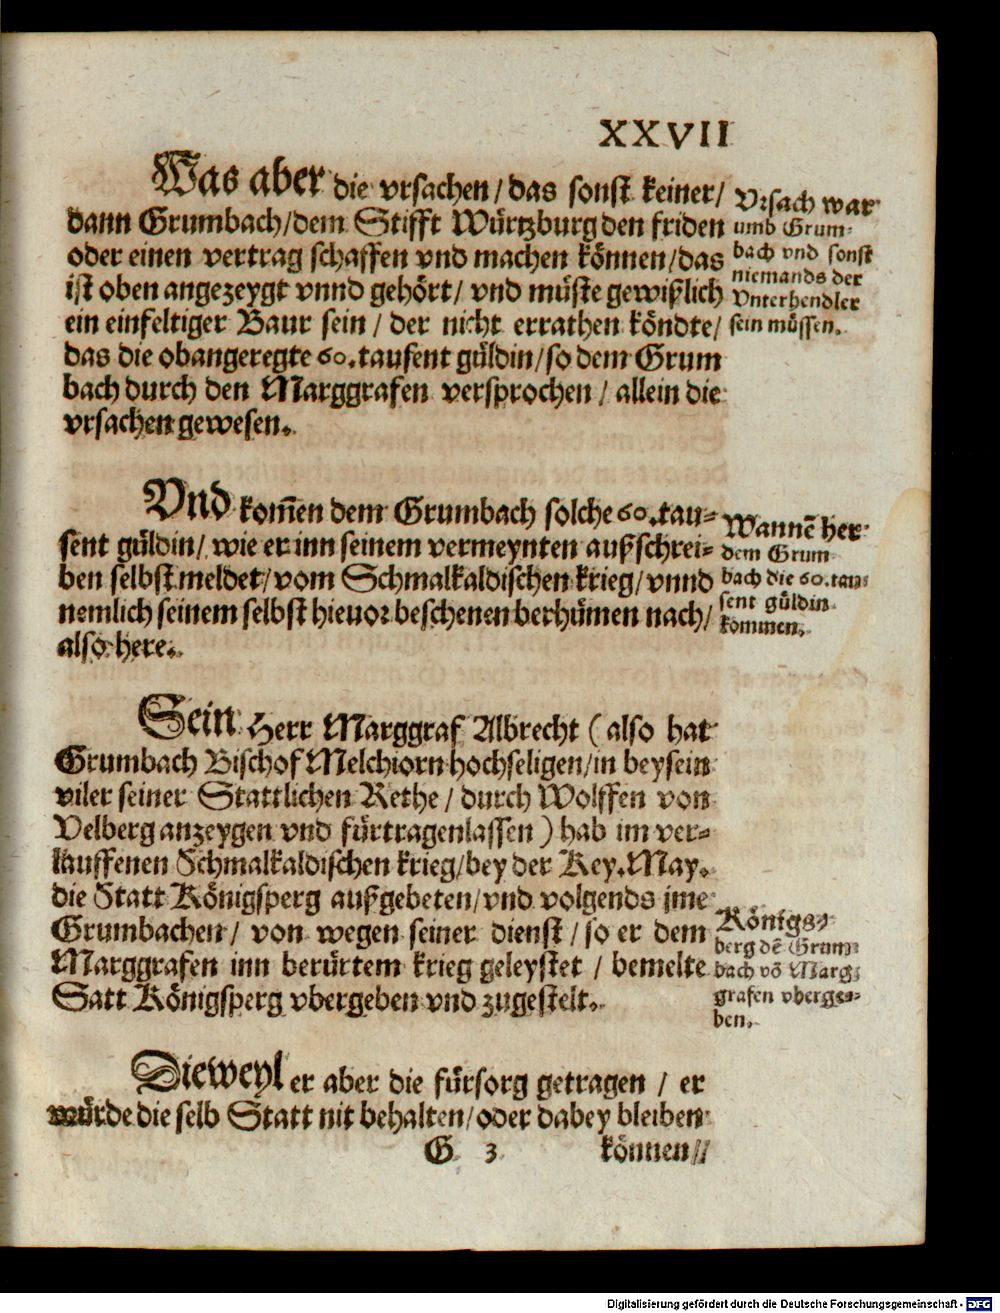 XXVII
Was aber die vrsachen / das sonst keiner /
dann Grumbach / dem Stifft Würtzburg den friden
oder einen vertrag schaffen vnd machen können / das
ist oben angezeygt vnnd gehört / vnd müste gewißlich
ein einfeltiger Baur sein / der nicht errathen köndte /
das die obangeregte 60. tausent güldin / so dem Grum
bach durch den Marggrafen versprochen / allein die
vrsachen gewesen.
Vrsach war
umb Grum-
bach vnd sonst
niemands der
Vnterhendler
sein müssen.
Vnd kom̃en dem Grumbach solche 60. tau-
sent güldin / wie er inn seinem vermeynten außschrei-
ben selbst meldet / vom Schmalkaldischen krieg / vnnd
nemlich seinem selbst hieuor beschenen berhümen nach /
also here.
Wannẽ her
dem Grum
bach die 60. tau
sent güldin
kommen.
Sein Herr Marggraf Albrecht ( also hat
Grumbach Bischof Melchiorn hochseligen / in beysein
viler seiner Stattlichen Rethe / durch Wolffen von
Velberg anzeygen vnd fürtragen lassen ) hab im ver-
lauffenen Schmalkaldischen krieg / bey der Key. May.
die Statt Königsperg außgebeten / vnd volgends jme
Grumbachen / von wegen seiner dienst / so er dem
Marggrafen inn berürtem krieg geleystet / bemelte
Satt Königsperg vbergeben vnd zugestelt.
Königs-
berg dẽ Grum
bach võ Marg
grafen vberge-
ben.
Dieweyl er aber die fürsorg getragen / er
würde die selb Statt nit behalten / oder dabey bleiben
G 3 können //
Digitalisierung gefördert durch die Deutsche Forschungsgemeinschaft - DFG